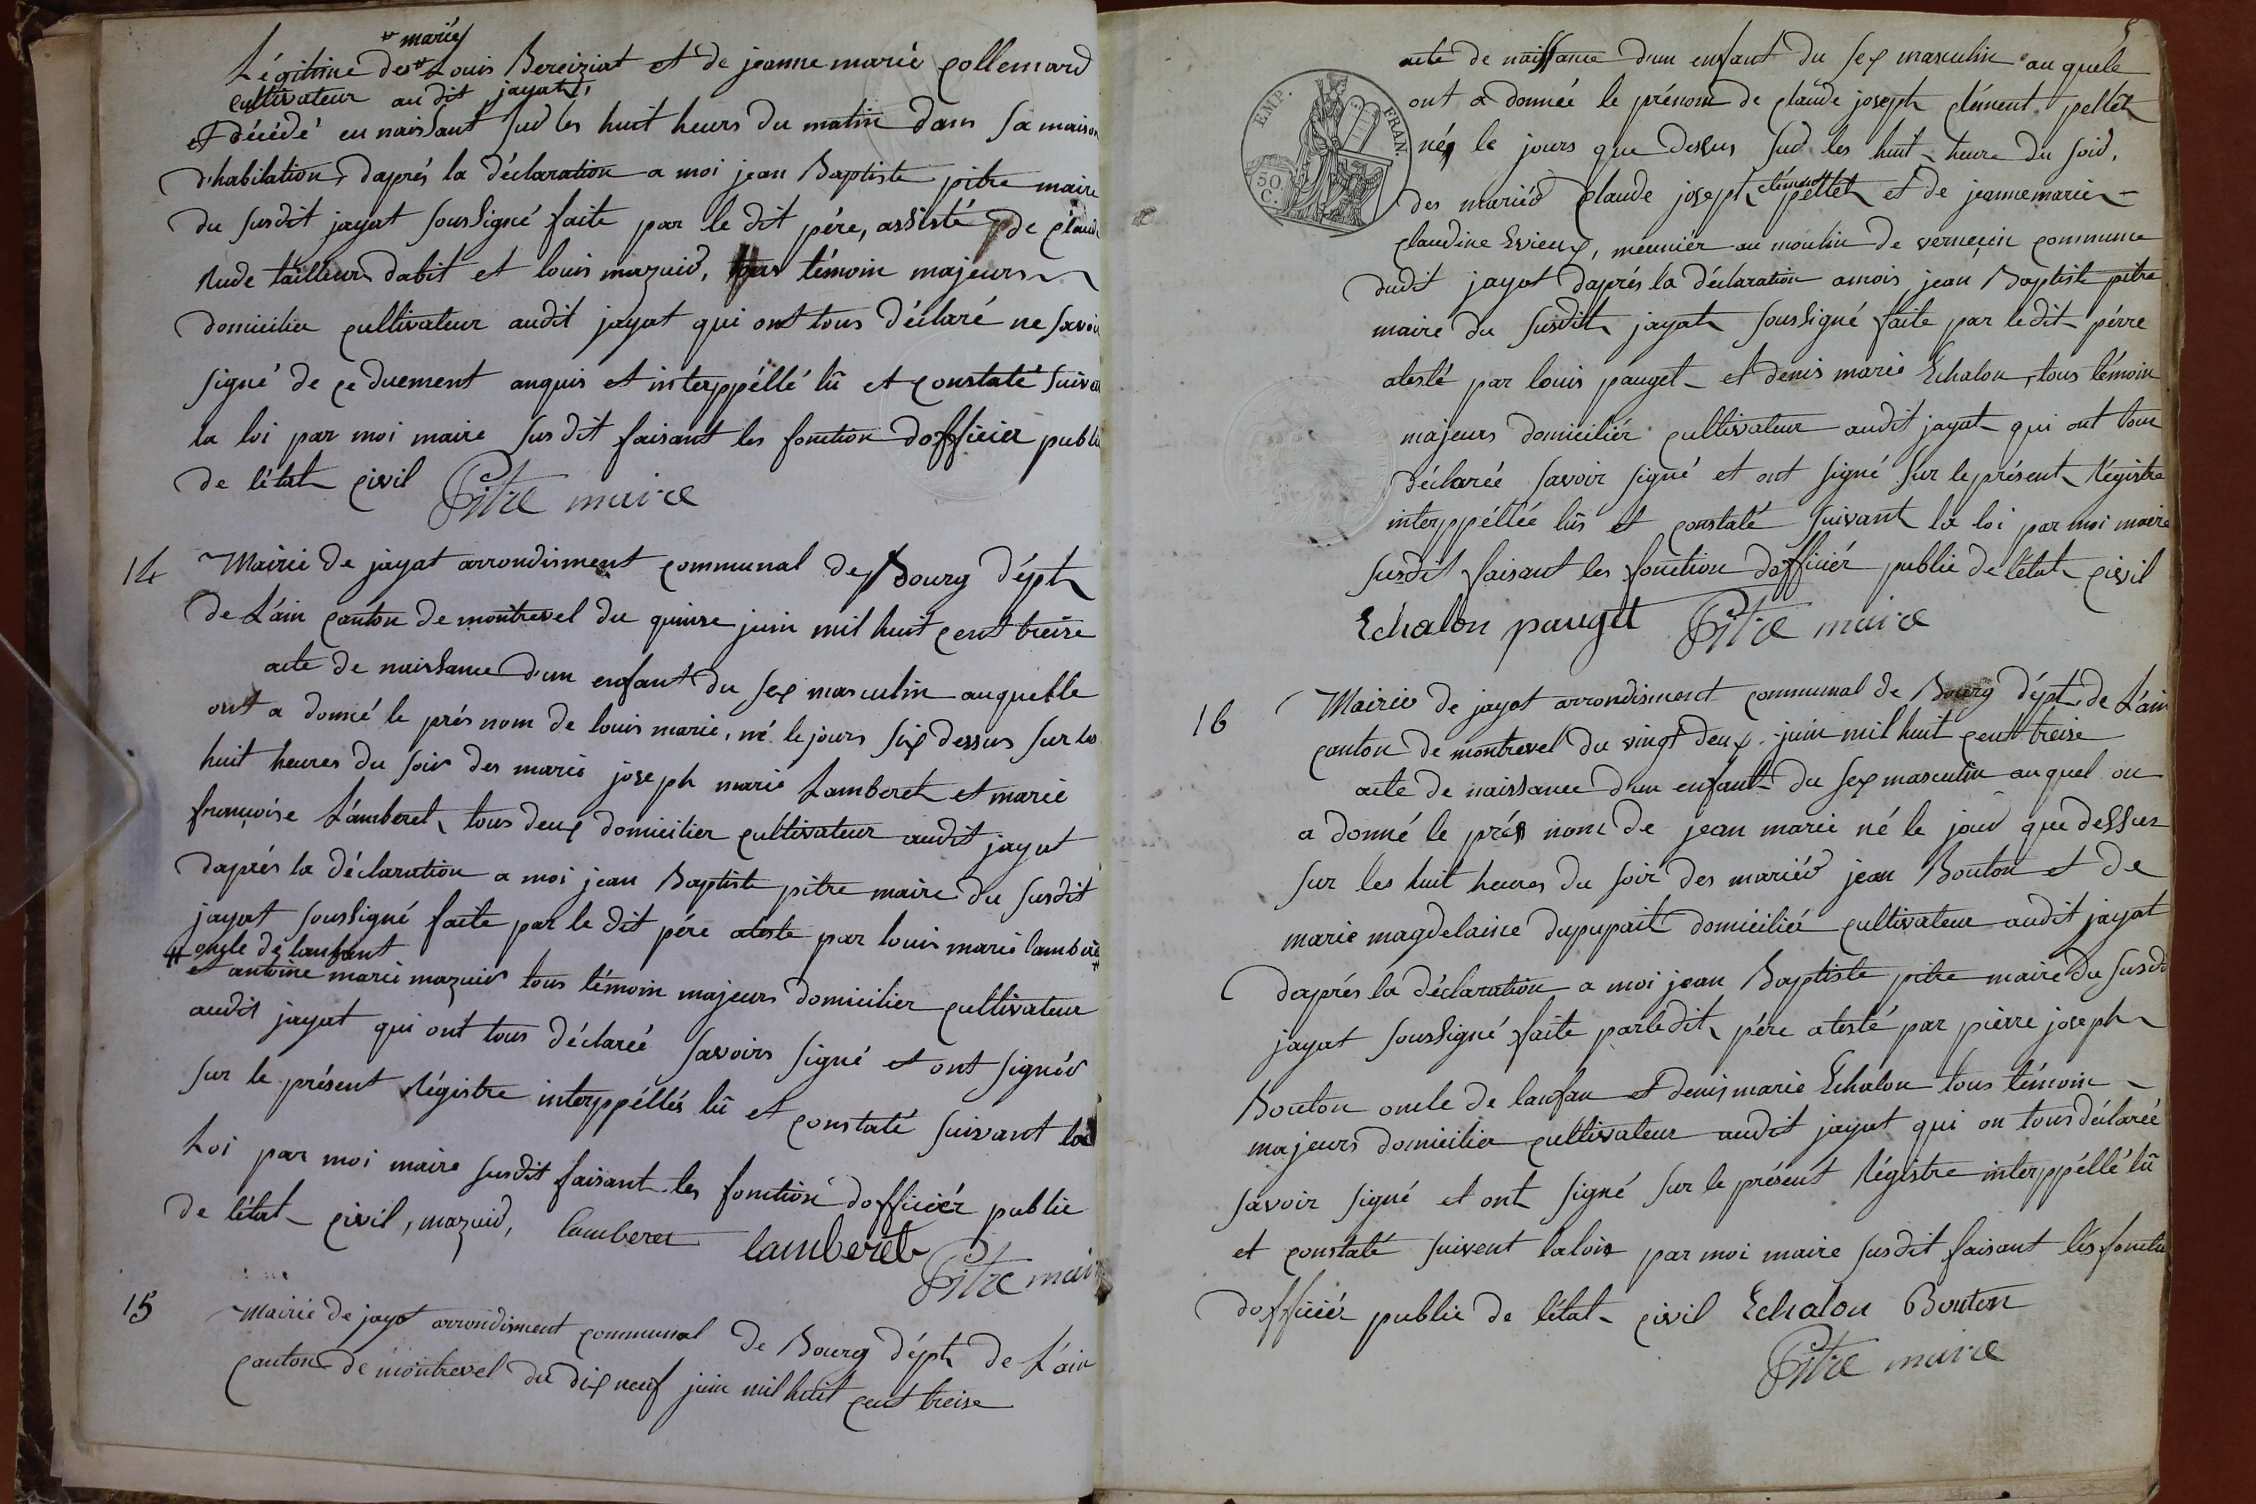 * mariés
Légitime des * Louis Bereiziat et de jeanne marie collemard
cultivateur au dit jayat,
et décédé en naissant sur les huit heurs du matin dans sa maison
d'habitation, daprés la déclaration a moi jean Baptiste pitre maire
du susdit jayat soussigné faite par le dit pére, assisté de claude
Rude tailleur dabit et louis mazuir, tous témoin majeurs
domicilier cultivateur audit jayat qui ont tous déclaré ne savoir
signé de ce duement anquis et interppéllé lû et constaté suivant
la loi par moi maire susdit faisant les fonction dofficier publi
de létat civil Pitre maire
14 Mairie de jayat arrondisment communal de Bourg dépt
de Láin canton de montrevel du quinse juin mil huit cent treise
acte de naissance dun enfant du sex masculin auquelle
ont a donné le prés nom de louis marie, né le jours six dessus sur les
huit heures du soir des marié joseph marie Lamberet et marie
françoise Lámberet, tous deux domicilier cultivateur audit jayat
daprés la déclaration a moi jean Baptiste pitre maire du susdit
jayat soussigné faite par le dit pére atesté par louis marie lamberet
# oncle de lanfant
et antoine marie mazuir tous témoin majeurs domicilier cultivateur
audit jayat qui ont tous déclareé savoirs signé et ont signér
sur le présent Régistre interppéllés lû et constaté suivant la
Loi par moi maire susdit faisant les fonction dofficiér public
de létat civil, mazuid, lamberet lamberet
Pitre mair
15 Mairie de jayat arrondisment communal de Bourg dépt de Láin
canton de montrevel du dix neuf juin mil huit cent treise
5
acte de naissance dun enfant du sex masculin au quele
ont a donnéé le prénom de claude joseph clément pellet
EMP. FRAN. 50 C.
né le jours que dessus sur les huit heure du soir,
des mariés claude joseph clément pellet et de jeannemarie
claudine Evieux, meuniér au moulin de verneçin commune
dudit jayat daprés la déclaration amois jean Baptiste pitre
maire du susdit jayat soussigné faite par ledit pérre
atesté par louis pauget et denis marie Echalon, tous témoin
majeurs domiciliér cultivateur audit jayat qui ont tous
déclareé savoir signé et ont signé sur le présent Régistre
interppélléé lûs et constaté suivant la loi par moi maire
susdit faisant les fonction dofficiér public de létat civil
Echalon pauget Pitre maire
16 Mairie de jayat arrondisment communal de Bourg dépt de Láin
canton de montrevel du vingt deux juin mil huit cent treise
acte de naissance dun enfant du sex masculin auquel on
a donné le prés nom de jean marie né le jour que dessus
sur les huit heures du soir des mariés jean Bouton et de
marie magdelaine dupupait domicilié cultivateur audit jayat
daprés la déclaration a moi jean Baptiste pitre maire du susdi
jayat soussigné faite parledit pére atesté par pierre joseph
Bouton oncle de lanfan et denis marie Echalon tous témoin
majeurs domicilier cultivateur audit jayat qui on tous déclareé
savoir signé et ont signé sur le présent Régistre interppéllé lû
et constaté suivent lalois par moi maire susdit faisant lés fonctio
dofficiér public de létat civil Echalon Bouton
Pitre maire